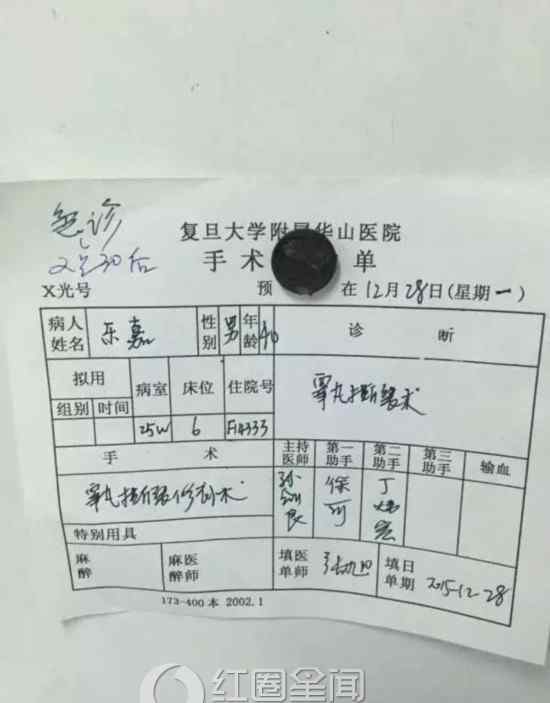 急诊
复旦大学附属华山医院
手术 单
X光号 预 在12月28日(星期一)
病人姓名 乐嘉 性别 男 年龄 40 诊断
拟用 病室 床位 住院号
组别 时间 25W 6 F14333
睾丸扭断缝术
手术 主持医师 第一助手 第二助手 第三助手 输血
睾丸扭断缝修补术
特别用具
麻醉 麻醉医师 填单医师 张旭 填单日期 2015-12-28
173-400本 2002.1
红圈全闻